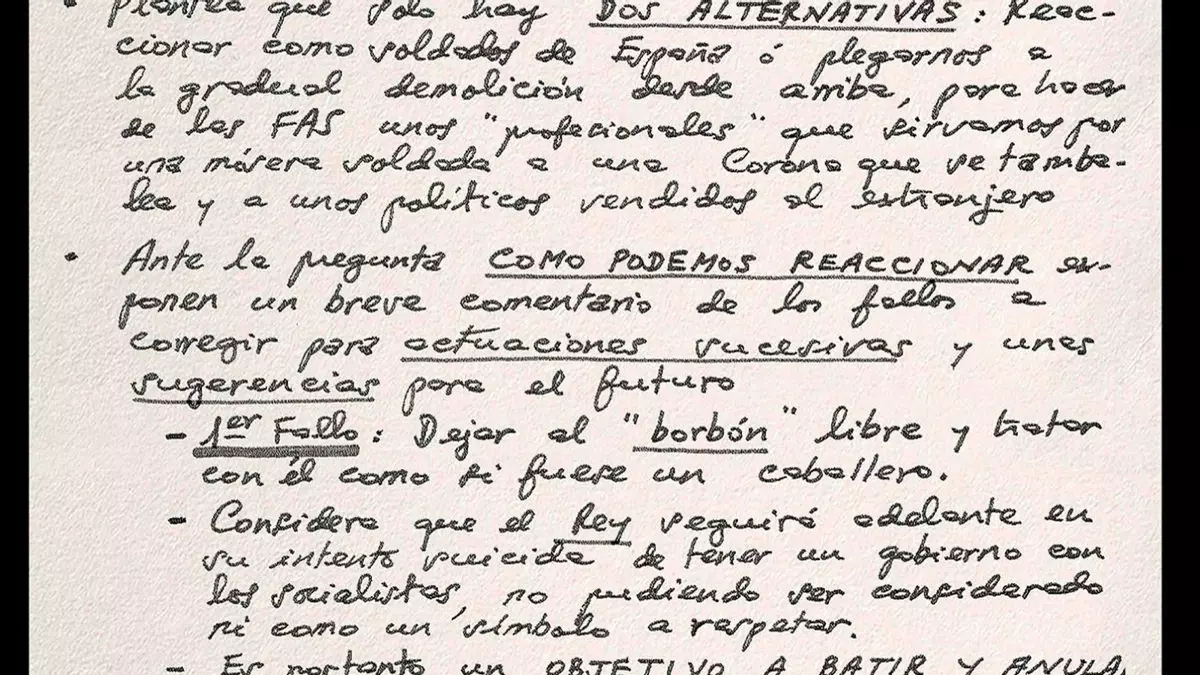 • Plantea que solo hay DOS ALTERNATIVAS: Reac-
cionar como soldados de España ó plegarnos a
la gradual demolición desde arriba, para hacer
de las FAS unos "profecionales" que sirvamos por
una mísera soldada a una Corona que se tamba-
lea y a unos políticos vendidos al extranjero
• Ante la pregunta COMO PODEMOS REACCIONAR ex-
ponen un breve comentario de los fallos a
corregir para actuaciones sucesivas y unas
sugerencias para el futuro
- 1er Fallo: Dejar al "borbón" libre y tratar
con él como si fuese un caballero.
- Considera que el Rey seguirá adelante en
su intento suicida de tener un gobierno con
los socialistas, no pudiendo ser considerado
ni como un símbolo a respetar.
- Es portanto un OBJETIVO A BATIR Y ANULA